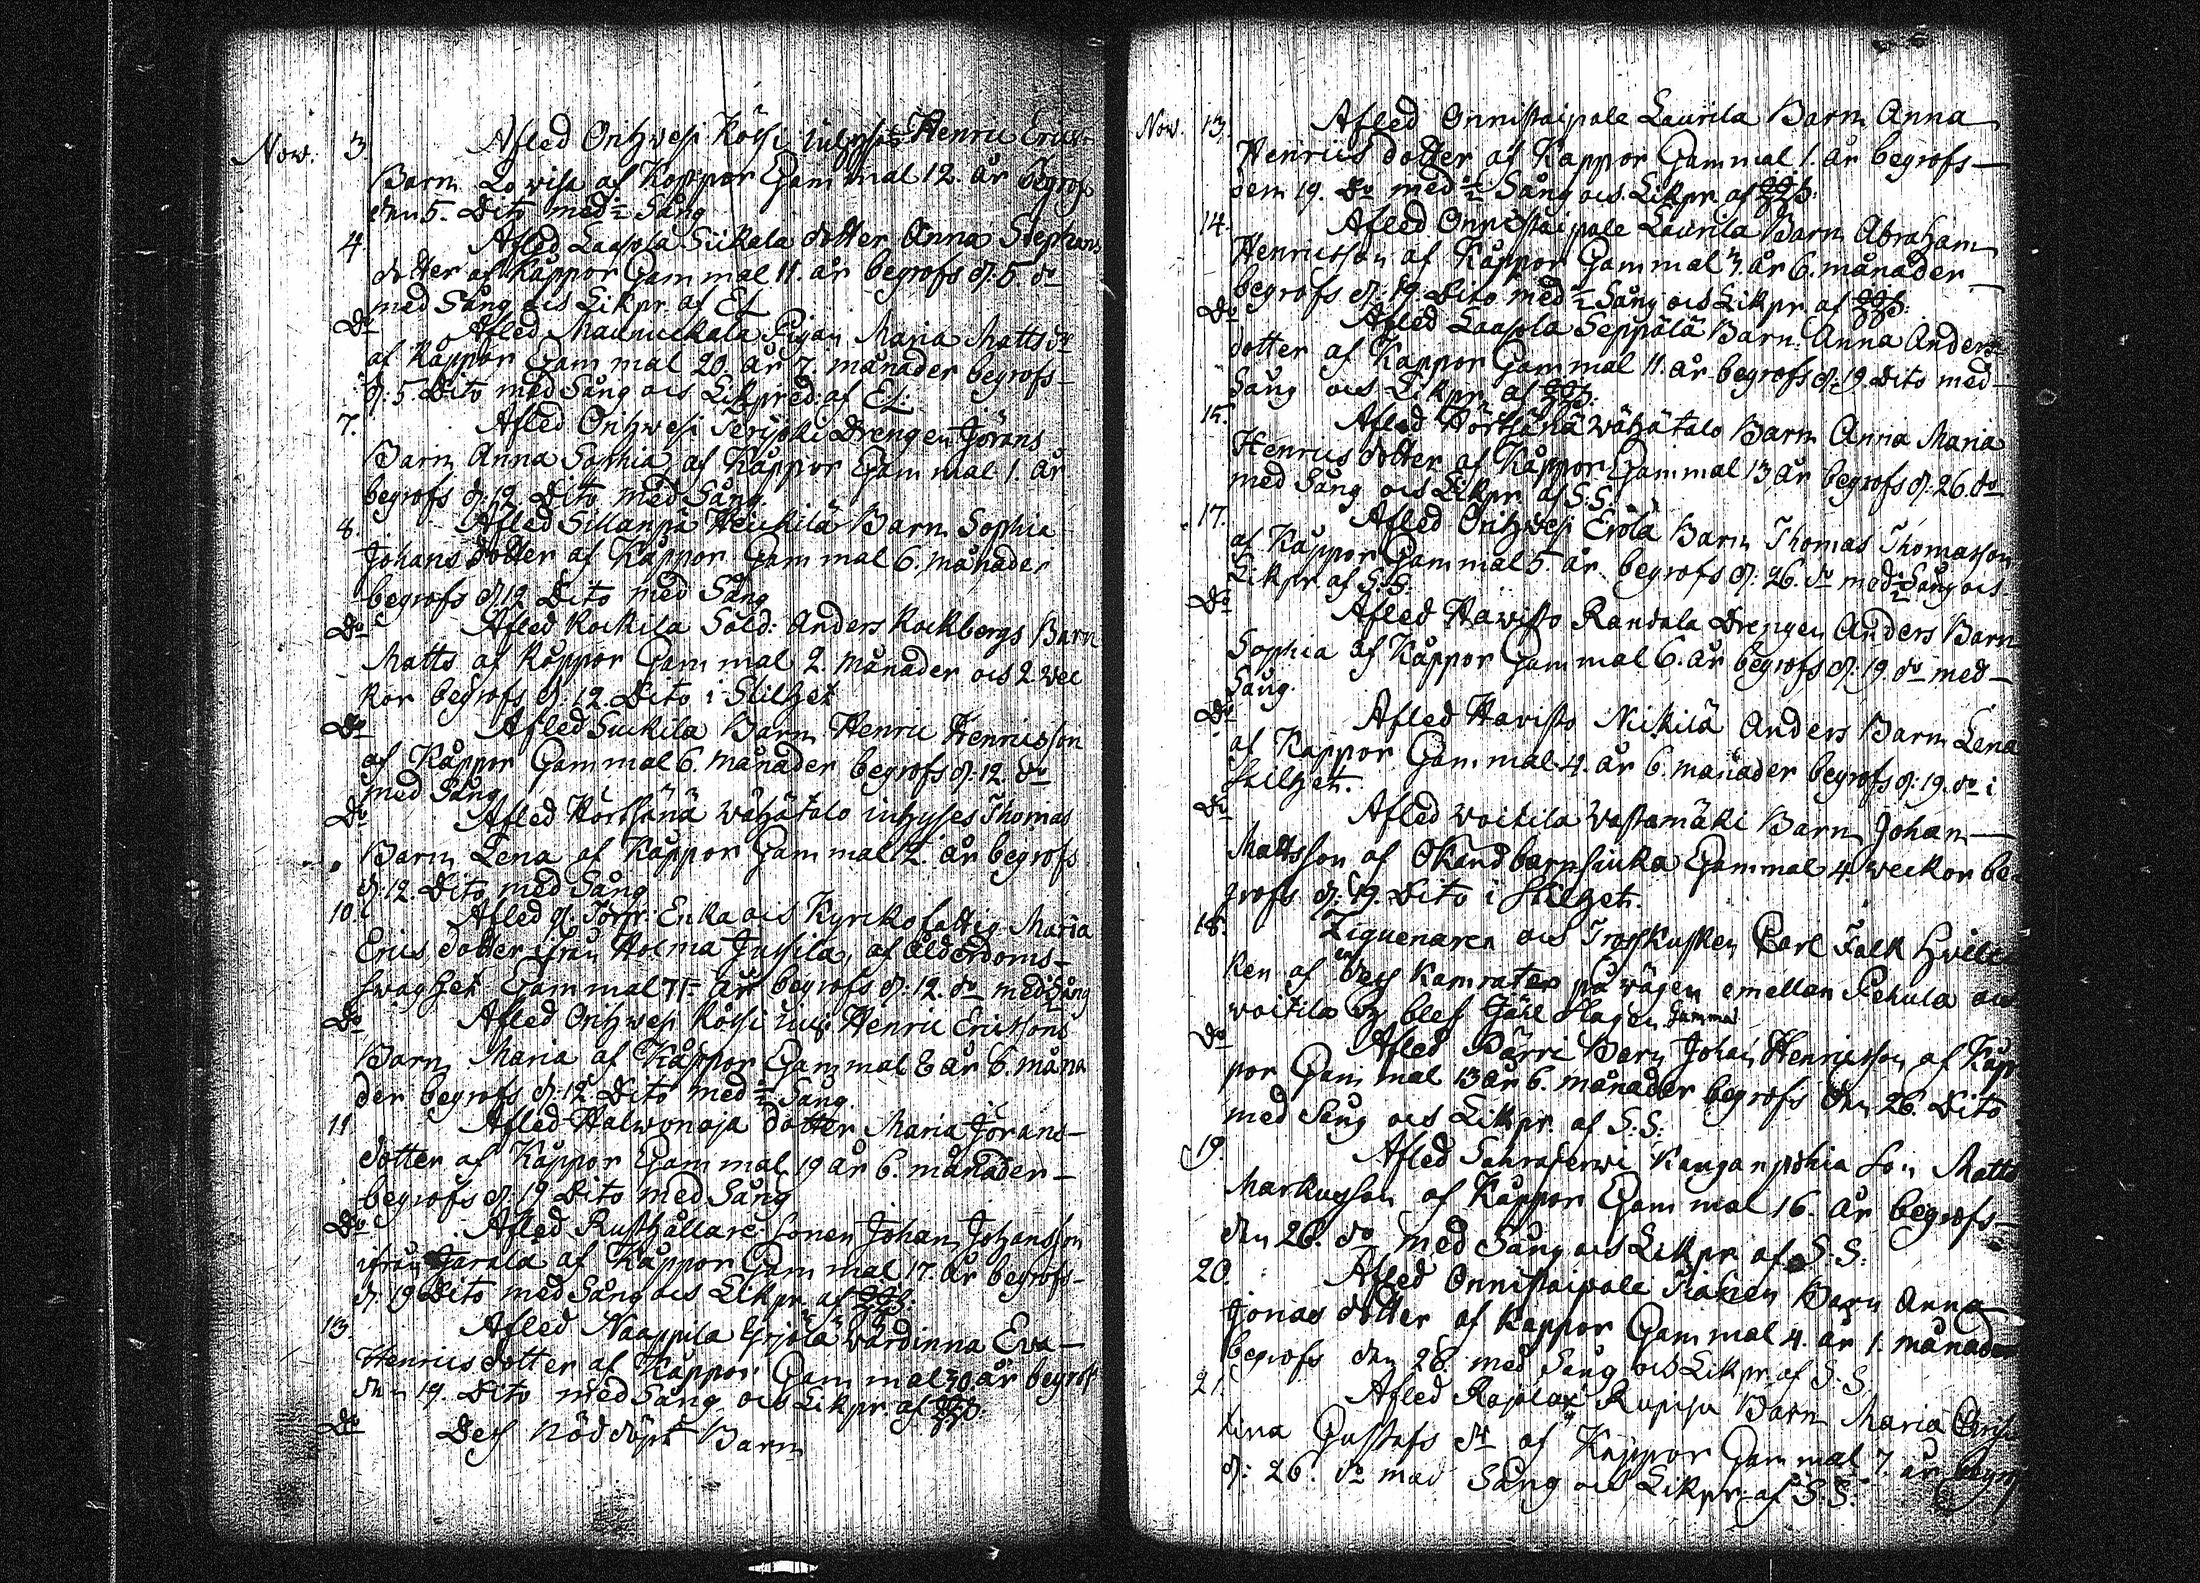 Nov. 3. Afled Orihwesi Kössi inhyses Henric Erics
Barn Lovisa af Koppor Gammal 12. år begrofs
den 5. Dito med ½ Sång
4. Afled Laasola Siikala dotter Anna Stephans
dotter af Kåppor Gammal 11. år begrofs d: 5. do
med Sång ocs Likpr. af EL
Do Afled Maunuckala Pigan Maria Matts dr
af Kåppor Gammal 20. år 7. månader begrofs
d: 5 Dito med Sång ocs Likpred: af EL:
7. Afled Orihwesi Terijoki Drengen Jörans
Barn Anna Sophia af Kåppor Gammal 1. år
begrofs d: 12 Dito med Sång.
8. Afled Sillanpä Heickilä Barn Sophia
Johans dotter af Kåppor Gammal 6. månader
begrofs d 12 Dito med Sång
Do Afled Kockila Sold: Anders Kockbergs Barn
Matts af Koppor Gammal 2. månader ocs 2 wec
kor begrofs d: 12. Dito i Stilhet
Do Afled Suckila Barn Henric Henricsson
af Kåppor Gammal 6. månader begrofs d: 12. do
med Sång
Do Afled Körttänä wähätalo inhyses Thomas
Barn Lena af Kåppor Gammal 2. år begrofs
d: 12. Dito med Sång
10. Afled Enka ocs Kyrkofattig Maria
Erics dotter ifrån Holma Jussila, af Ålderdoms
swaghet Gammal år begrofs d: 12. do med Sång
Do Afled Orihwesi Kössi Henric Ericssons
Barn Maria af Kåppor Gammal 8 år 6. måna
der begrofs d: 12. Dito med ½ Sång.
11 Afled Halwonoja dotter Maria Jörans
dotter af Kåppor Gammal 19 år 6. månader
begrofs d: 19 Dito med Sång
Do Afled Rusthållare Sonen Johan Johansson
ifrån Jarala af Kåppor Gammal 17. år begrofs
d: 19 Dito med Sång ocs Likpr. af
13. Afled Naappila Yrjölä wärdinna Eva
Henricsdotter af Kåppor Gammal 30. år begrofs
den 19. Dito med Sång ocs Likpr. af
Do Dess Nöddöpt Barn
Nov. 13. Afled Onnistaipale Laurila Barn Anna
Henrics dotter af Kappor Gammal 1. år begrofs
dem 19. Do med ½ Sång ocs Likpr. af
14. Afled Onnistaipale Laurila Barn Abraham
Henricsson af Kåppor Gammal år 6. månader
begrofs d: 19. Dito med ½ Sång ocs Likpr. af
Do Afled Laasola Seppälä Barn Anna Anders
dotter af Kappor Gammal 11. år begrofs d: 19. Dito med
Sång ocs Likpr. af
15. Afled Körttänä wähätalo Barn Anna Maria
Henrics dotter af Kåppor Gammal 13 år begrofs d: 26. do
med Sång ocs Likpr. af S:S.
17. Afled Orihwesi Erolä Barn Thomas Thomasson
af Kåppor Gammal 5. år begrofs d: 26. do med ½ Sång ocs
Likpr. af S:S:
Do Afled Hawisto Randala Drengen Anders Barn
Sophia af Kåppor Gammal 6. år begrofs d: 19. do med
Sång.
Do Afled Havisto Nickilä Anders Barn Lena
af Kappor Gammal 4. år 6. månader begrofs d: 19. do i
stilhet.
Do Afled Woitila Wastamäki Barn Johan
Mattsson af Okänd barnsiuka Gammal 4. weckor be
grofs d: 19. Dito i Stilhet.
18. Ziguenaren ocs Trosskusken Carl Falk hvilc
ken af en dess kamrater på wägen emellan Pekula ocs
Woitila blef ihjäl slagen Gammal
Do Afled Pärri Barn Johan Henricsson af Kåp
por Gammal 13 år 6. månader begrofs den 26. Dito
med Sång ocs Likpr. af S:S:
19. Afled Sahrajerwi Kanganpohia son Matts
Markusson af Kåppor Gammal 16. år begrofs
den 26. do med Sång ocs Likpr. af S:S:
20. Afled Onnistaipale Barn Anna
Jonas dotter af Kappor Gammal 4. år 1. månader
begrofs den 26. med Sång ocs Likpr. af S.S.
21. Afled Rajalax Barn Maria Chris
tina Gustafs dr af Kåppor Gammal 7. år begrof
d: 26. do med Sång ocs Likpr. af S:S: